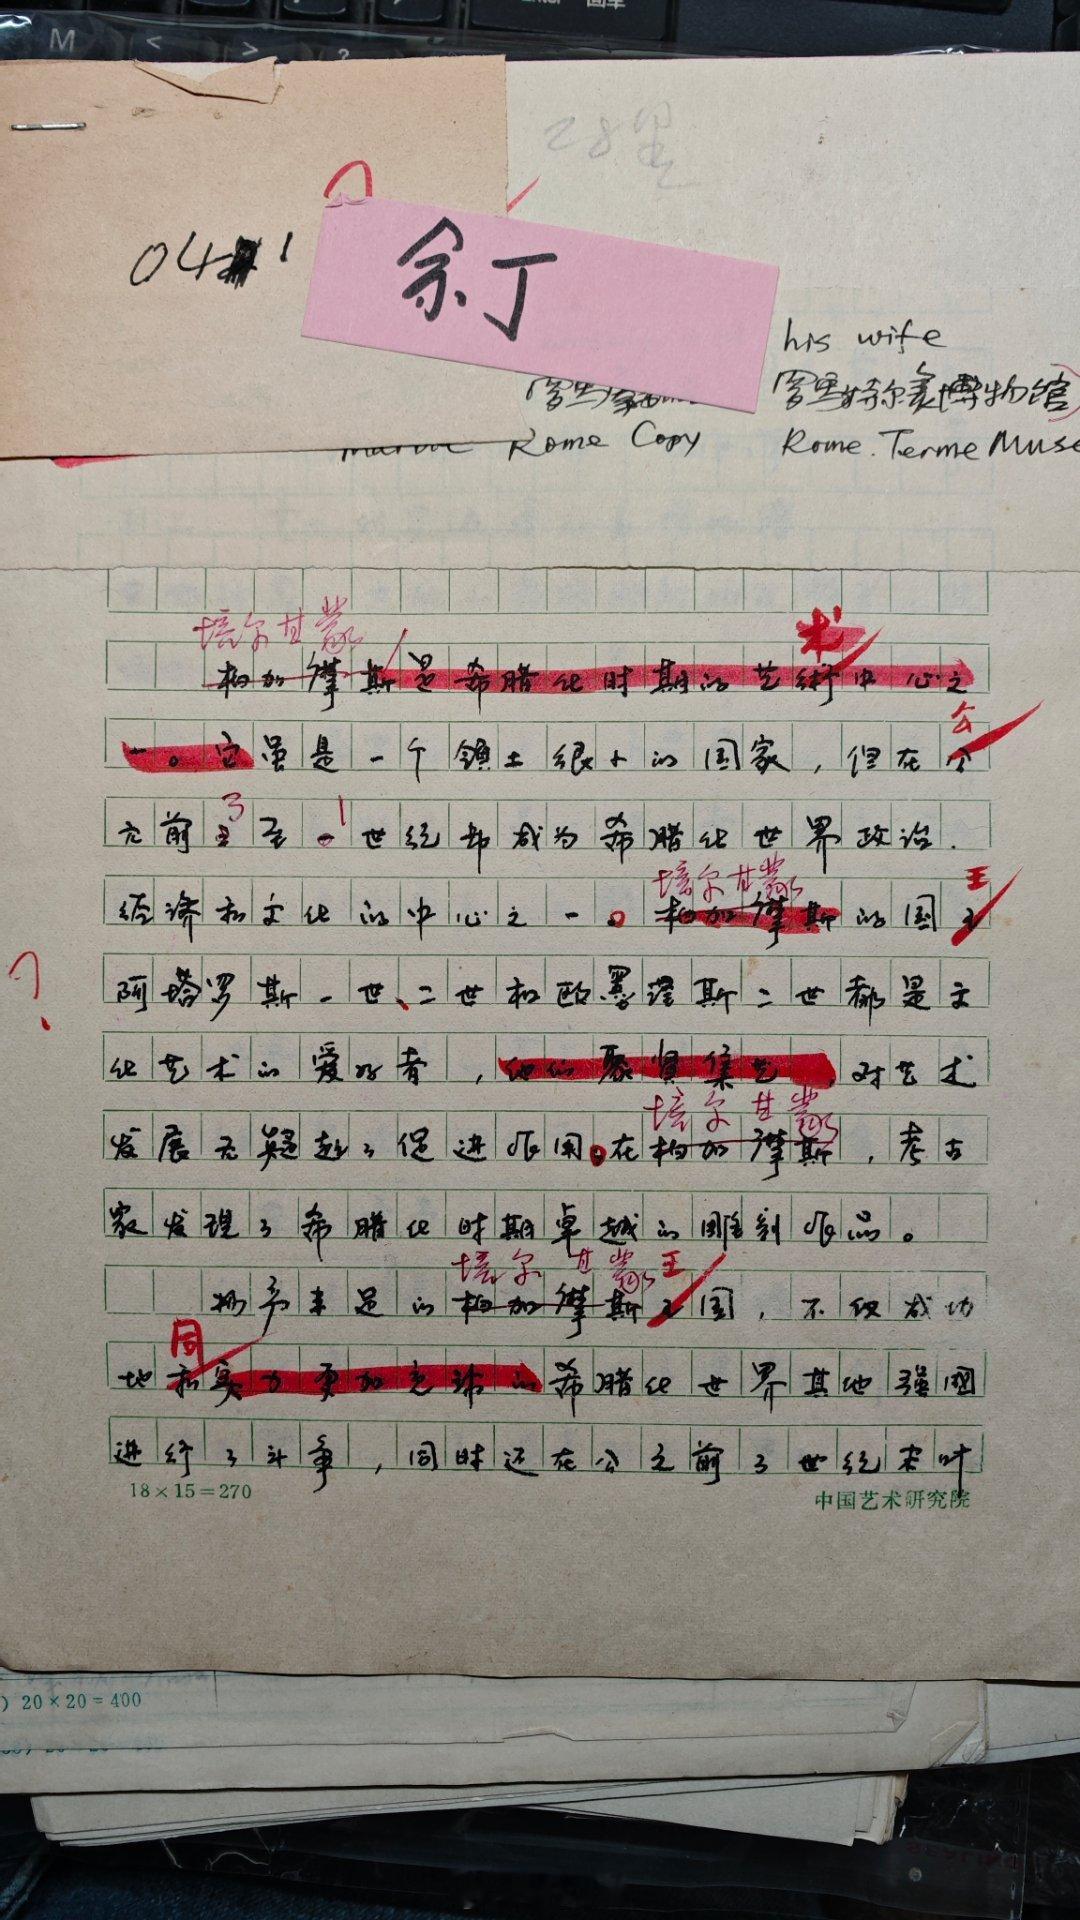 M < > ?
28里
041
余丁
his wife
罗马特尔袁博物馆)
Rome Copy
Rome. Terme Muse
培尔甘蒙
术
柏加摩斯是希腊化时期的艺術中心之
公
一。它虽是一个領土很小的国家,但在个
3 1
元前三至一世纪却成为希腊化世界政治.
培尔甘蒙 王
经济和文化的中心之一。柏加摩斯的国王
?
阿塔罗斯一世、二世和欧墨涅斯二世都是文
化艺术的爱好者,他们聚贤集艺,对艺术
培尔甘蒙
发展无疑起了促进作用。在柏加摩斯,考古
家发现了希腊化时期卓越的雕刻作品。
培尔甘蒙 王
物产丰足的柏加摩斯王国,不仅成功
同
地和实力更加充沛的希腊化世界其他强国
进行了斗争,同时还在公元前3世纪末叶
18×15=270
中国艺术研究院
) 20×20=400